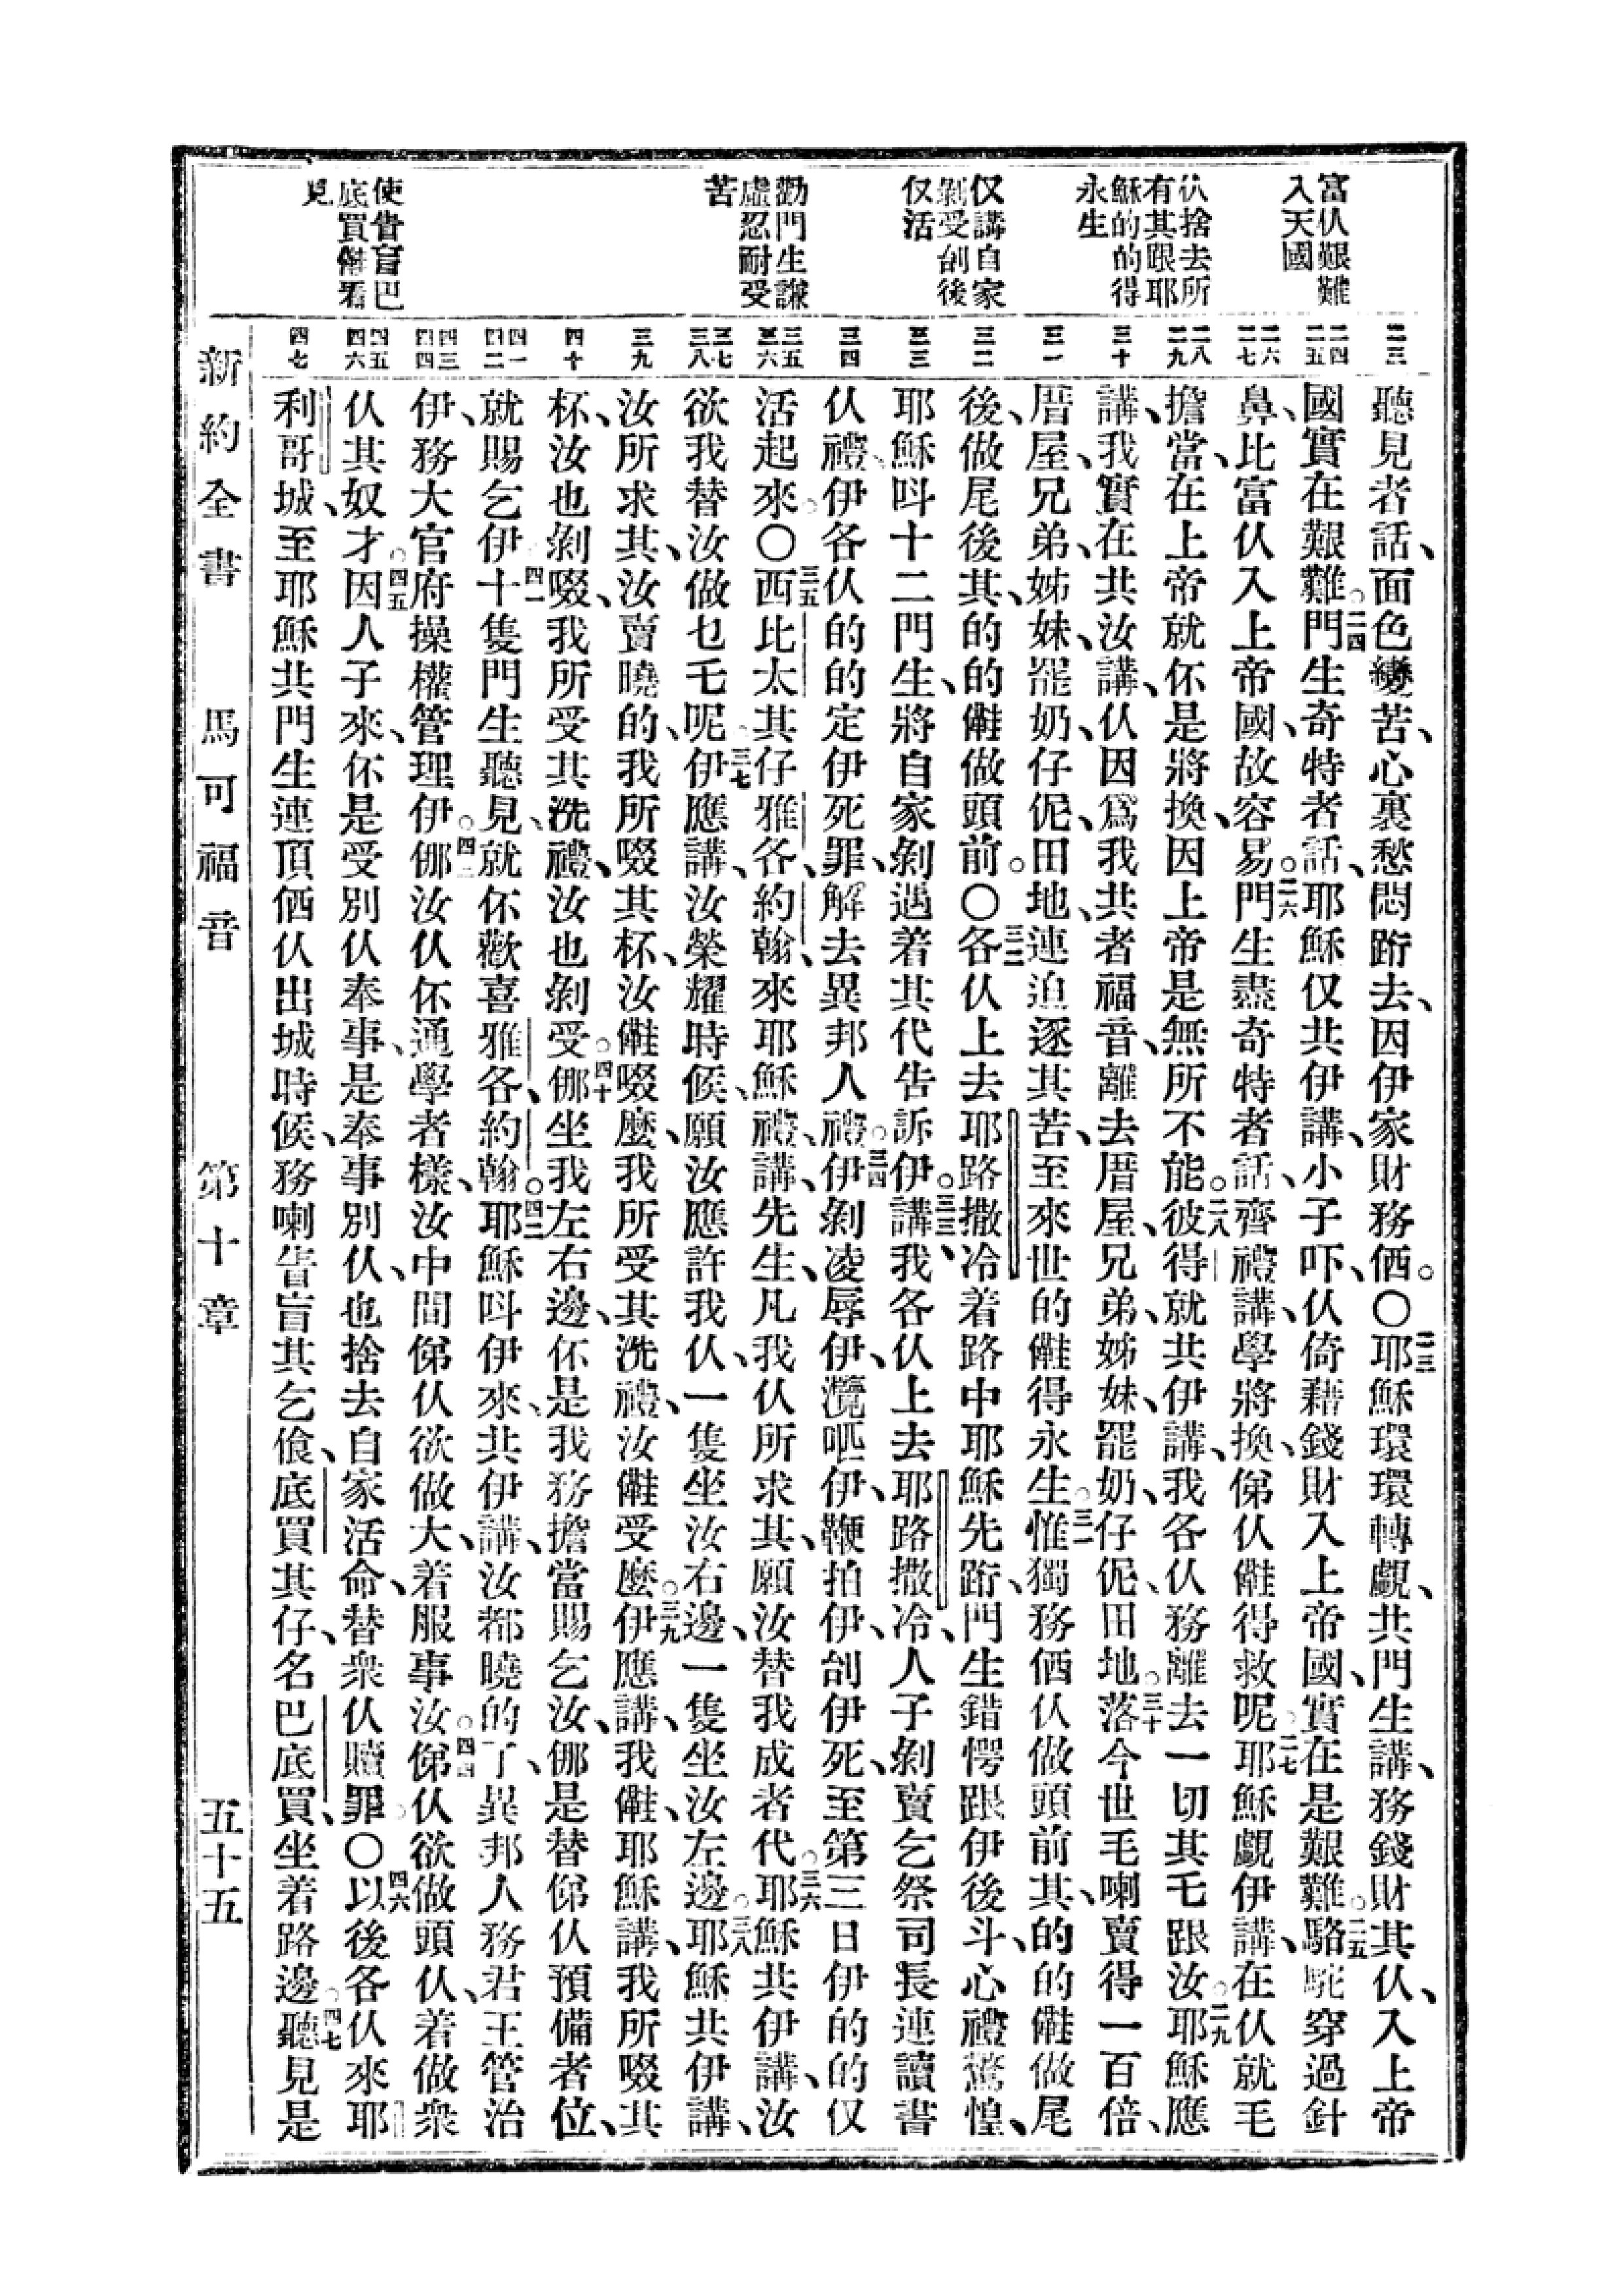 富仈艱難
入天國
仈捨去所
有其跟耶
穌的的得
永生
仅講自家
剝受刣後
仅活
勸門生謙
虛忍耐受
苦
使眚盲巴
底買㑚看
見
二三
二四 二五
二六 二七
二八 二九
三十
三一
三二
三三
三四
三五 三六
三七 三八
三九
四十
四一 四二
四三 四四
四五 四六
四七
聽見者話、面色變苦、心裏愁悶跲去、因伊家財務価。〇二三耶穌環環轉覷、共門生講、務錢財其仈、入上帝
國實在艱難。二四門生奇特者話、耶穌仅共伊講、小子吓、仈倚藉錢財入上帝國、實在是艱難。二五駱駝穿過針
鼻、比富仈入上帝國、故容易。二六門生盡奇特者話、齊禮講、學將換、俤仈㑚得救呢。二七耶穌覷伊講、在仈就毛
擔當、在上帝就伓是將換、因上帝是無所不能。二八彼得就共伊講、我各仈務離去一切其乇跟汝。二九耶穌應
講、我實在共汝講、仈因爲我共者福音、離去厝屋、兄弟、姊妹、罷奶、仔伲、田地。三十落今世毛喇賣得一百倍、
厝屋、兄弟、姊妹、罷奶、仔伲、田地、連迫逐其苦、至來世的㑚得永生。三一惟獨務価仈做頭前其、的的㑚做尾
後、做尾後其、的的㑚做頭前。〇三二各仈上去耶路撒冷着路中耶穌先跲、門生錯愕跟伊後斗、心禮驚惶、
耶穌呌十二門生、將自家剝遇着其代告訴伊。三三講、我各仈上去耶路撒冷、人子剝賣乞祭司長連讀書
仈禮、伊各仈的的定伊死罪、解去異邦人禮。三四伊剝凌辱伊、瀺呸伊、鞭拍伊、刣伊死、至第三日伊的的仅
活起來。〇三五西比太其仔雅各、約翰、來耶穌禮、講、先生、凡我仈所求其、願汝替我成者代。三六耶穌共伊講、汝
欲我替汝做乜乇呢。三七伊應講、汝榮耀時候、願汝應許我仈、一隻坐汝右邊、一隻坐汝左邊。三八耶穌共伊講、
汝所求其、汝賣曉的、我所啜其杯、汝㑚啜麽、我所受其洗禮、汝㑚受麽。三九伊應講、我㑚、耶穌講、我所啜其
杯、汝也剝啜、我所受其洗禮、汝也剝受。四十㑚坐我左右邊、伓是我務擔當賜乞汝、㑚是替俤仈預備者位、
就賜乞伊。四一十隻門生聽見、就伓歡喜雅各、約翰。四二耶穌呌伊來、共伊講、汝都曉的了、異邦人務君王管治
伊、務大官府操權管理伊。四三㑚汝仈伓通學者樣、汝中間俤仈欲做大、着服事汝。四四俤仈欲做頭仈、着做衆
仈其奴才。四五因人子來、伓是受別仈奉事、是奉事別仈、也捨去自家活命、替衆仈贖罪。〇四六以後各仈來耶
利哥城、至耶穌共門生連頂価仈出城時候、務喇眚盲其乞飡、底買其仔、名巴底買、坐着路邊。四七聽見是
新約全書 馬可福音 第十章 五十五